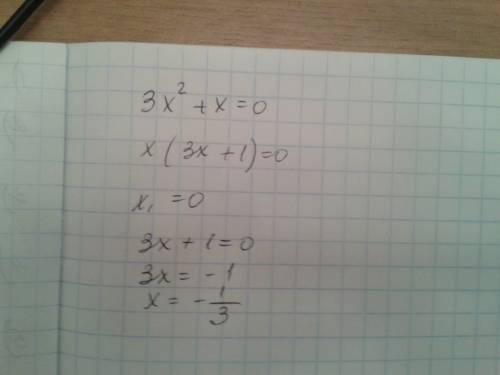 3x² + x = 0
x(3x + 1) = 0
x₁ = 0
3x + 1 = 0
3x = -1
x = -1/3